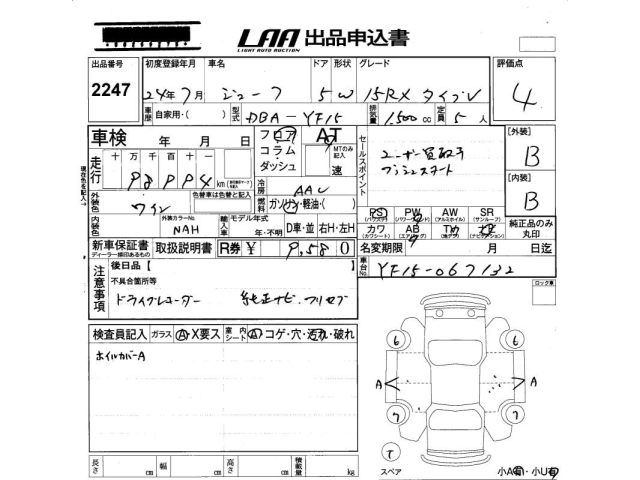 LAA 出品申込書
LIGHT AUTO AUCTION
出品番号 初度登録年月 車名 ドア 形状 グレード 評価点
2247 24年7月 ジューク 5 W 15RX タイプV 4
車歴 自家用・( ) 型式 DBA-YF15 排気量 1500 cc 定員 5 人
車検 年 月 日 フロア AT セールスポイント [外装]
コラム MTのみ記入 ユーザー買取り B
走行 十 万 千 百 十 ダッシュ 速 プッシュスタート
km [内装]
冷房 AAC B
外装色 ワイン 色替車は色替と記入 燃料 ガソリン・軽油・( )
内装色 外装カラーNo. NAH 輸入車 モデル年式 年・不明 D車・並 右H・左H
PS PW AW SR 純正品のみ丸印
(パワステ) (パワーウインド) (アルミホイル) (サンルーフ)
カワ AB TV ナビ
(カワシート) (エアバッグ) (ナビゲーション)
新車保証書 取扱説明書 R券 ¥ 9,580 名変期限 月 日迄
ディーラー捺印あるもの
車台No. YF15-067132
注意事項 後日品【 】 ロック車
不具合箇所等
ドライブレコーダー 純正ナビ・フルセグ
検査員記入 ガラス A・X要ス 室内シート A・コゲ・穴・汚れ・破れ
ホイルカバーA
6 6
A A
7 7
T
スペア 小A有・小U有
長さ cm 幅 cm 高さ cm 積載量 kg